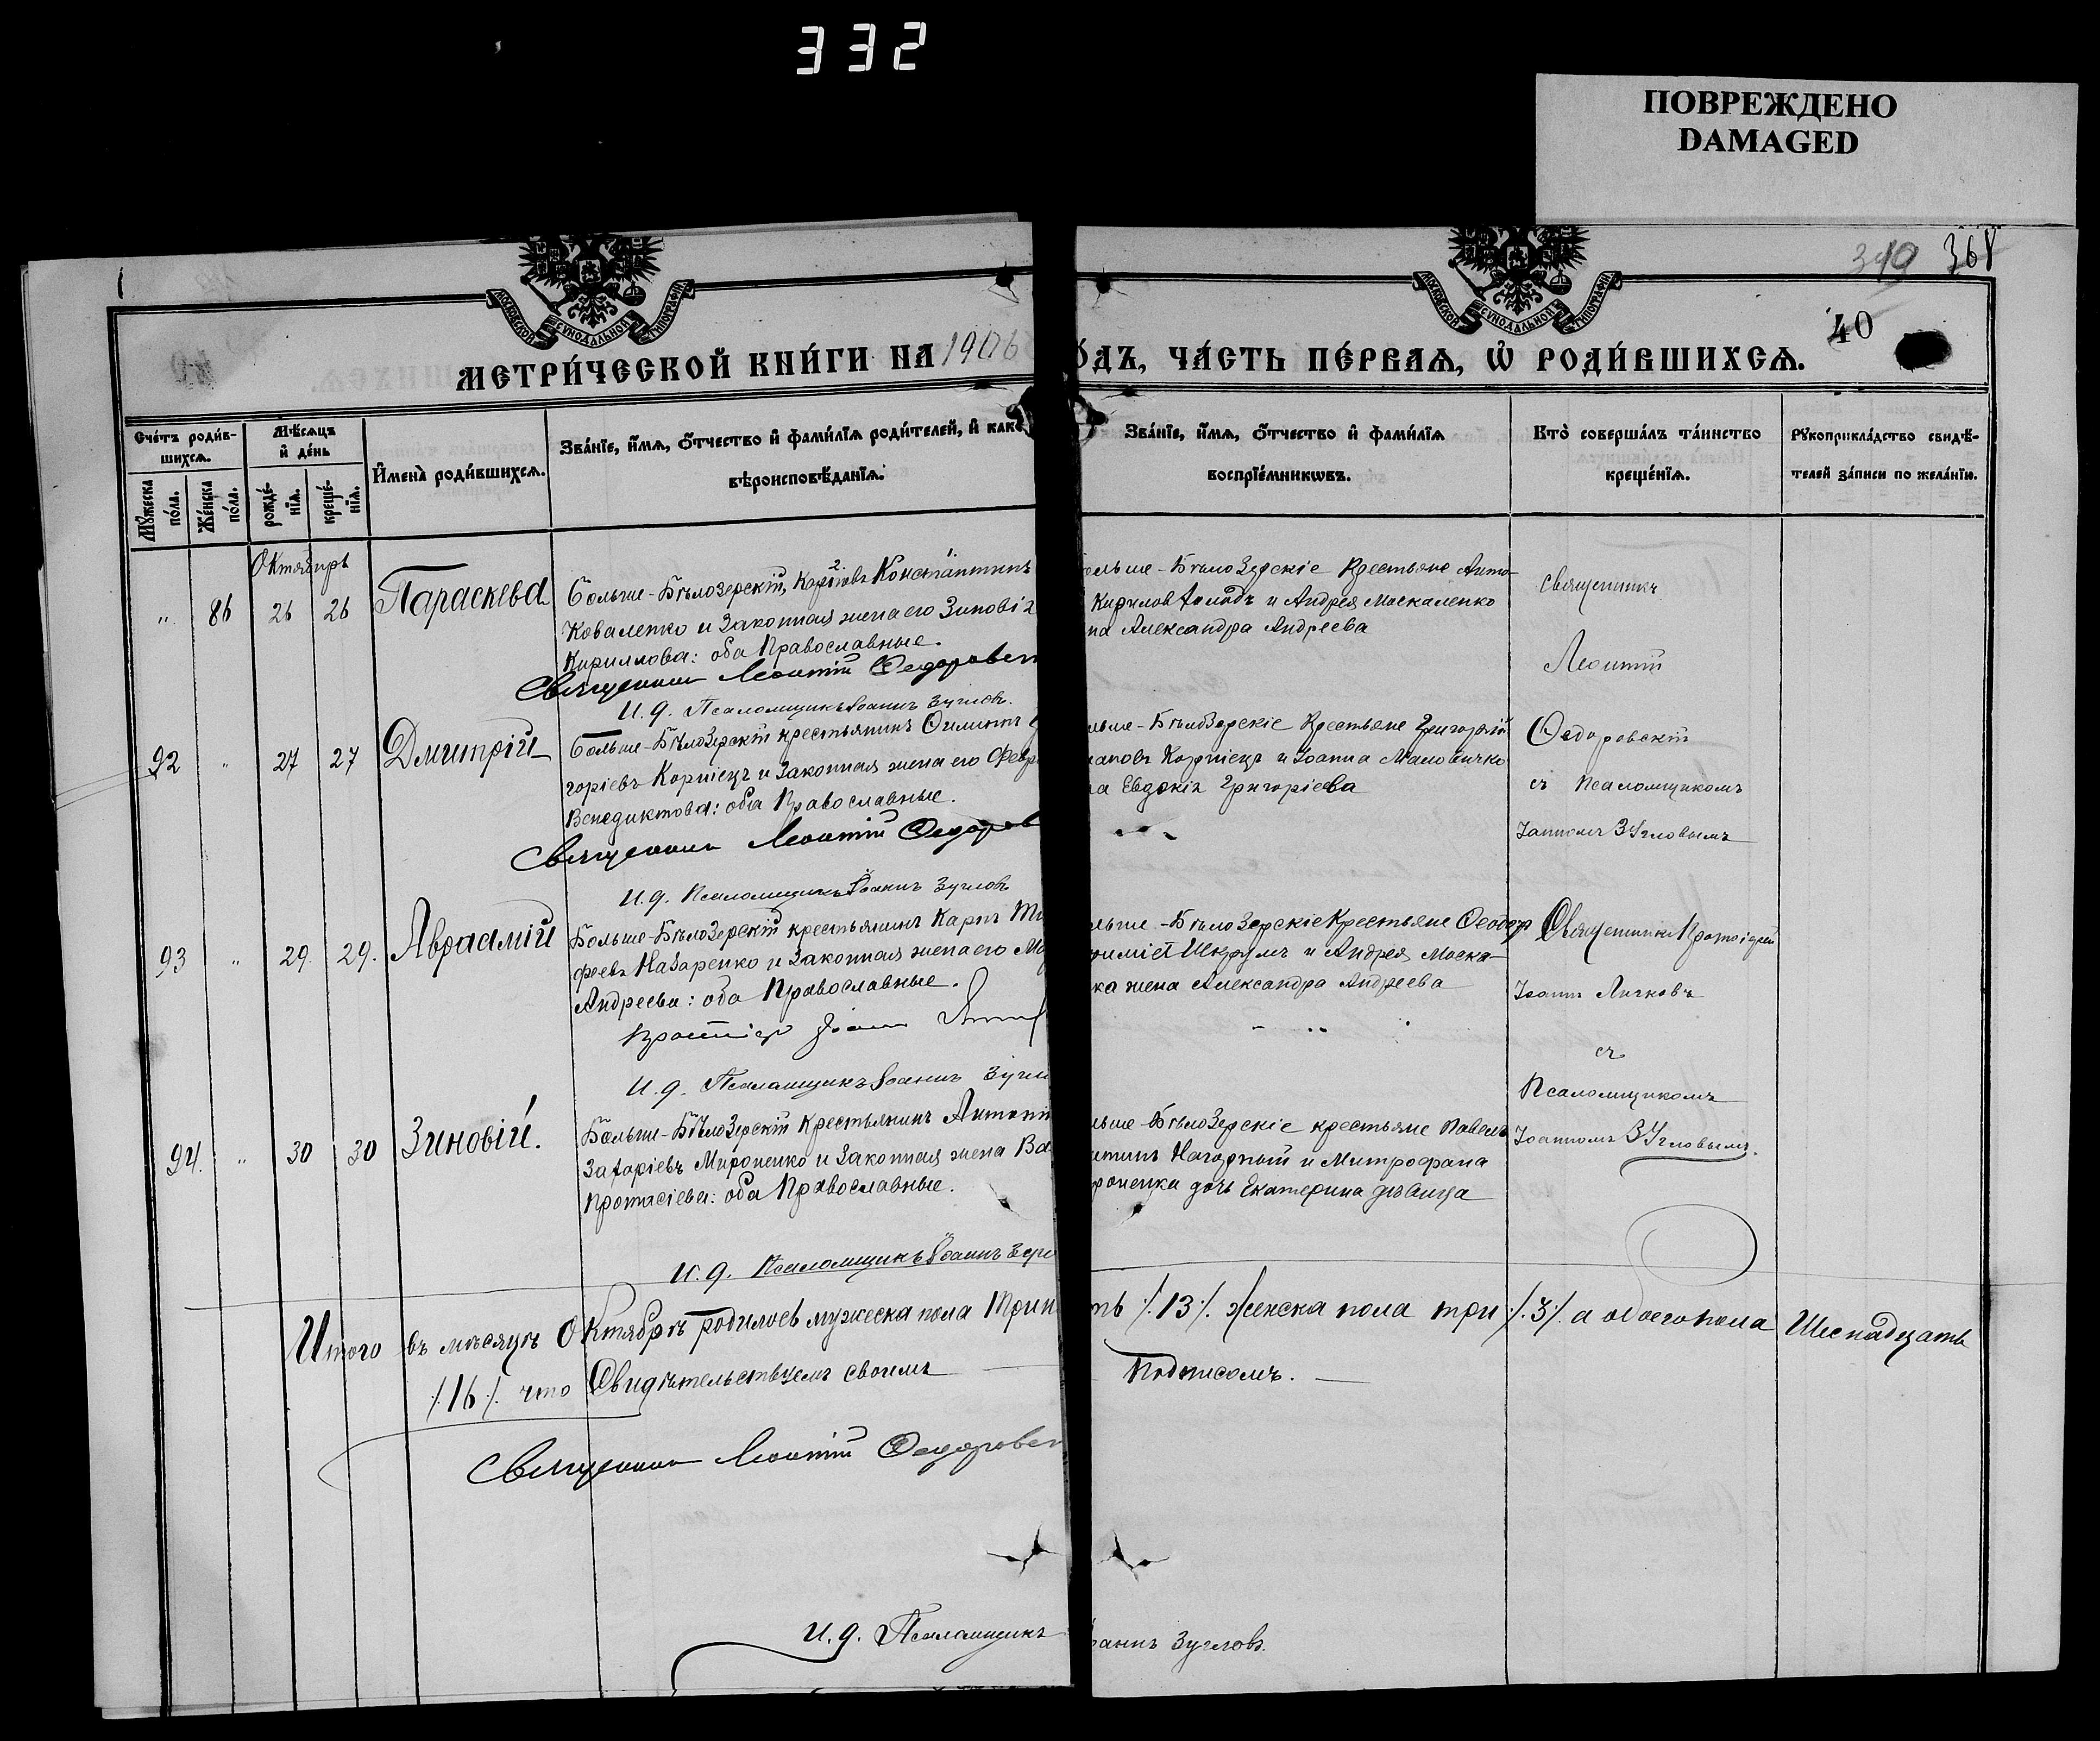 332
ПОВРЕЖДЕНО
DAMAGED
319 368
40
МОСКОВСКОЙ СѴНОДАЛЬНОЙ ТИПОГРАФІИ
МОСКОВСКОЙ СѴНОДАЛЬНОЙ ТИПОГРАФІИ
МЕТРИ́ЧЕСКОЙ КНИ́ГИ НА 1906
О́ДЪ, ЧА́СТЬ ПЕ́РВАѦ, Ѡ҆ РОДИ́ВШИХСѦ.
Сче́тъ роди́в-
шихсѧ.
Мꙋ́жеска по́ла.
Же́нска по́ла.
Мѣ́сѧцъ
и҆ де́нь
рожде́-
нїѧ.
креще́-
нїѧ.
И҆мена̀ роди́вшихсѧ.
Зва́нїе, и҆́мѧ, ѻ҆́тчество и҆ фами́лїѧ роди́телей, и҆ како
вѣроисповѣ́данїѧ.
Зва́нїе, и҆́мѧ, ѻ҆́тчество и҆ фами́лїѧ
воспрїе́мникѡвъ.
Кто̀ соверша́лъ та́инство
креще́нїѧ.
Рꙋкоприкла́дство свидѣ́-
телей за́писи по жела́нїю.
Октябрь
„ 86 26 26 Параскева
Больше-Бѣлозерскій Константинъ
Коваленко и законная жена его Зиновія
Кириллова: оба Православные.
Священник Леонтій Федоровск
И. д. Псаломщикъ Іоаннъ Зугловъ.
ольше-Бѣлозерскіе Крестьяне Анто-
Кирилов и Андрея Москаленко
на Александра Андреева
Священникъ
Леонтій
Ѳедоровскій
съ Псаломщикомъ
Іоанномъ Зугловымъ
92 „ 27 27 Дмитрій
Больше-Бѣлозерскій крестьянинъ Филиппъ
горіевъ Корніецъ и законная жена его Февр
Венедиктова: оба Православные.
Священник Леонтій Федоров
И. д. Псаломщикъ Іоаннъ Зуглов
льше-Бѣлозерскіе Крестьяне Григорій
Корніецъ и Іоанна Маловичко
на Евдокія Григоріева
93 „ 29. 29. Авраамій
Больше-Бѣлозерскій крестьянинъ Карпъ Ти
феевъ Назаренко и законная жена его Ма
Андреева: оба Православные.
Протоіер Іоанн
И. д. Псаломщикъ Іоаннъ Зугл
льше-Бѣлозерскіе Крестьяне Ѳеодор
и Андрея Моска-
ка жена Александра Андреева
Священникъ Протоіерей
Іоаннъ Личковъ
съ
Псаломщикомъ
Іоанномъ Зугловымъ.
94. „ 30 30 Зиновій.
Больше-Бѣлозерскій Крестьянинъ Антоні
Захаріевъ Мироненко и законная жена Ва
Протасіева: оба Православные.
И. д. Псаломщикъ Іоаннъ Зугл
льше-Бѣлозерскіе крестьяне Павелъ
Нагорный и Митрофана
роненка дочь Екатерина дѣвица
Итого въ мѣсяцѣ Октябрѣ родилось мужеска пола Трин
ть /.13/. женска пола три /.3/. а обоего пола Шеснадцать
/.16/. что Свидѣтельствуемъ своимъ
Подписомъ.
Священник Леонтій Федоровск
И. д. Псаломщикъ
оаннъ Зугловъ.